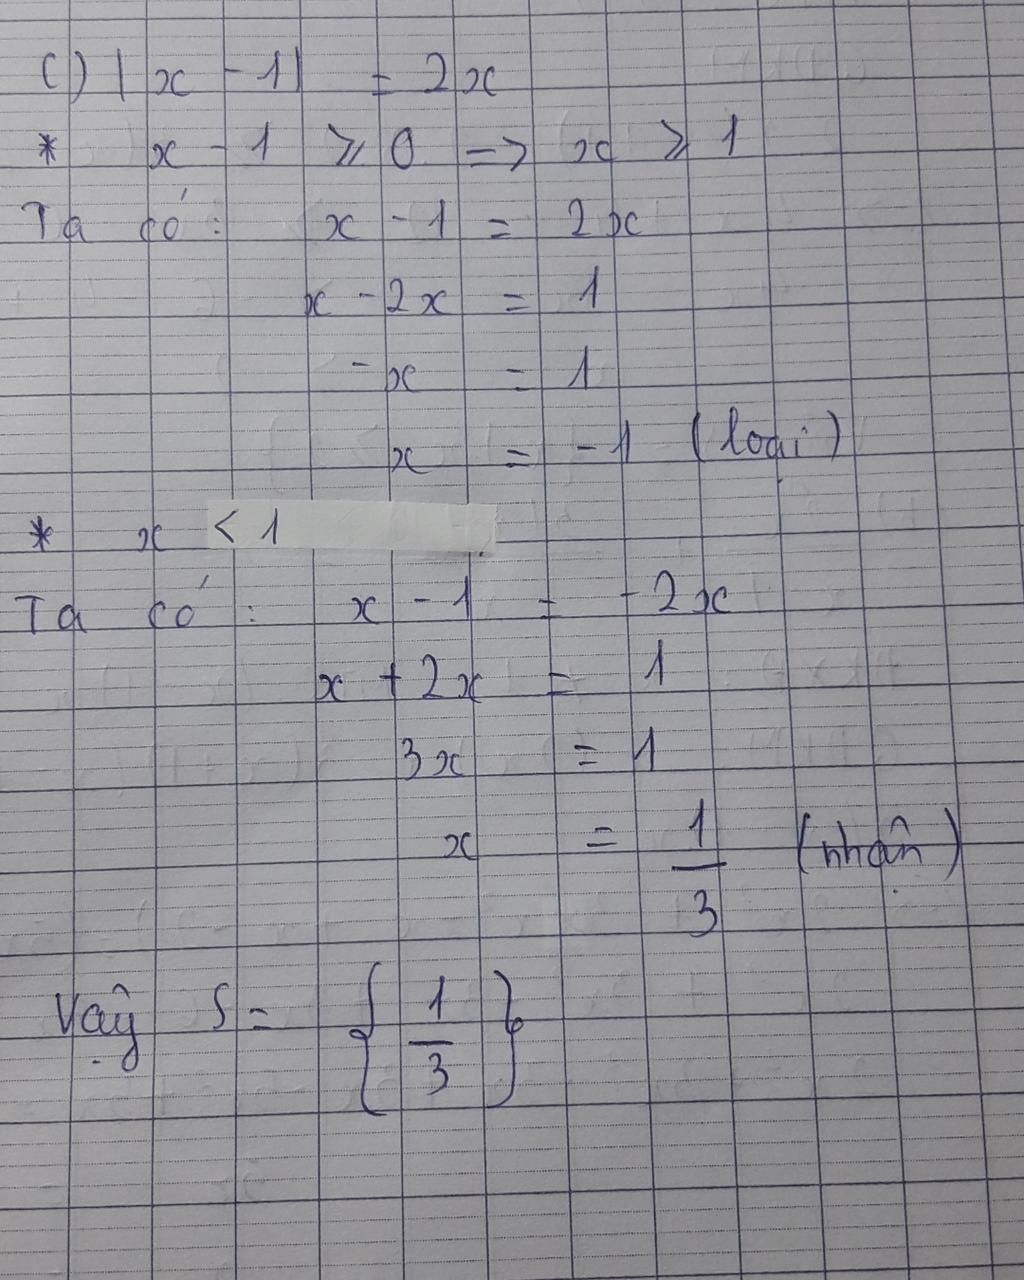 c) |x - 1| = 2x
* x - 1 ⩾ 0 => x ⩾ 1
Ta có: x - 1 = 2x
x - 2x = 1
- x = 1
x = -1 (loại)
* x < 1
Ta có: x - 1 = -2x
x + 2x = 1
3x = 1
x = 1/3 (nhận)
Vậy S = {1/3}